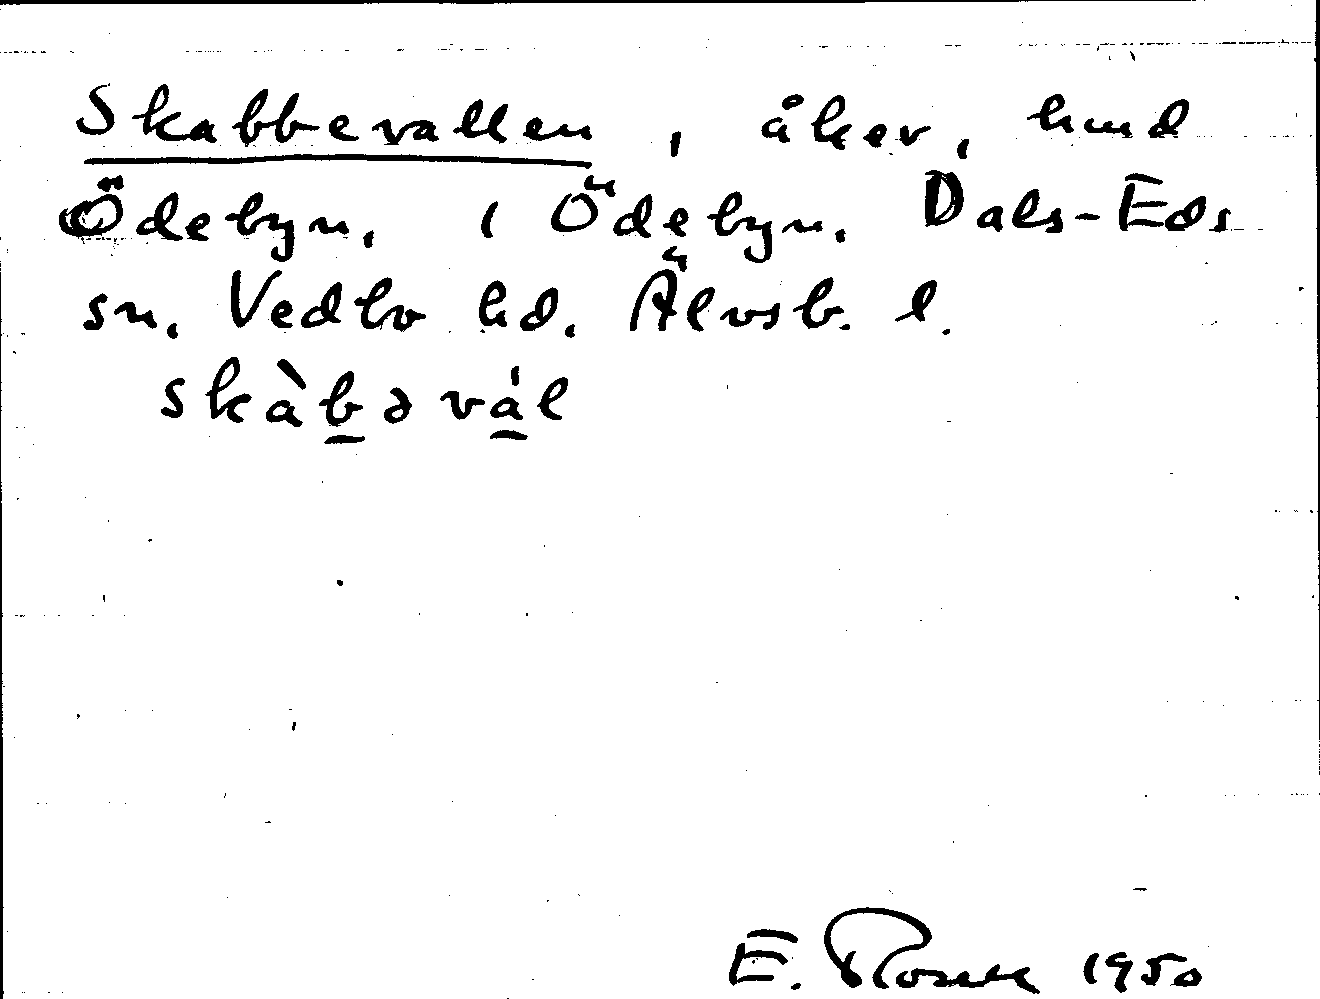 Skabbevallen, åker, hmd
Ödebyn, i Ödebyn. Dals-Eds
sn. Vedbo hd. Älvsb. l.
skàbəvál
E. 1950